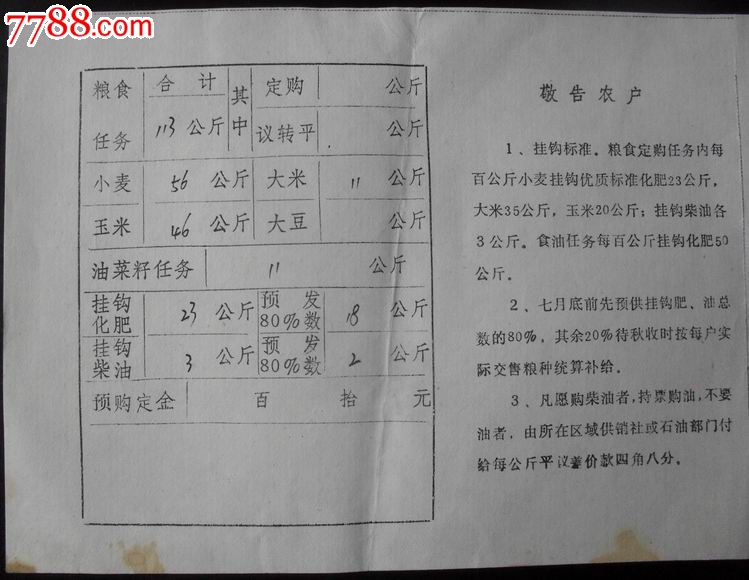 7788.com
粮食任务 合计 113 公斤 其中 定购 公斤
议转平 公斤
小麦 56 公斤 大米 11 公斤
玉米 46 公斤 大豆 公斤
油菜籽任务 11 公斤
挂钩化肥 23 公斤 预发80%数 18 公斤
挂钩柴油 3 公斤 预发80%数 2 公斤
预购定金 百 拾 元
敬告农户
1、挂钩标准。粮食定购任务内每
百公斤小麦挂钩优质标准化肥23公斤，
大米35公斤，玉米20公斤；挂钩柴油各
3公斤。食油任务每百公斤挂钩化肥50
公斤。
2、七月底前先预供挂钩肥、油总
数的80%，其余20%待秋收时按每户实
际交售粮种统算补给。
3、凡愿购柴油者，持票购油，不要
油者，由所在区域供销社或石油部门付
给每公斤平议差价款四角八分。